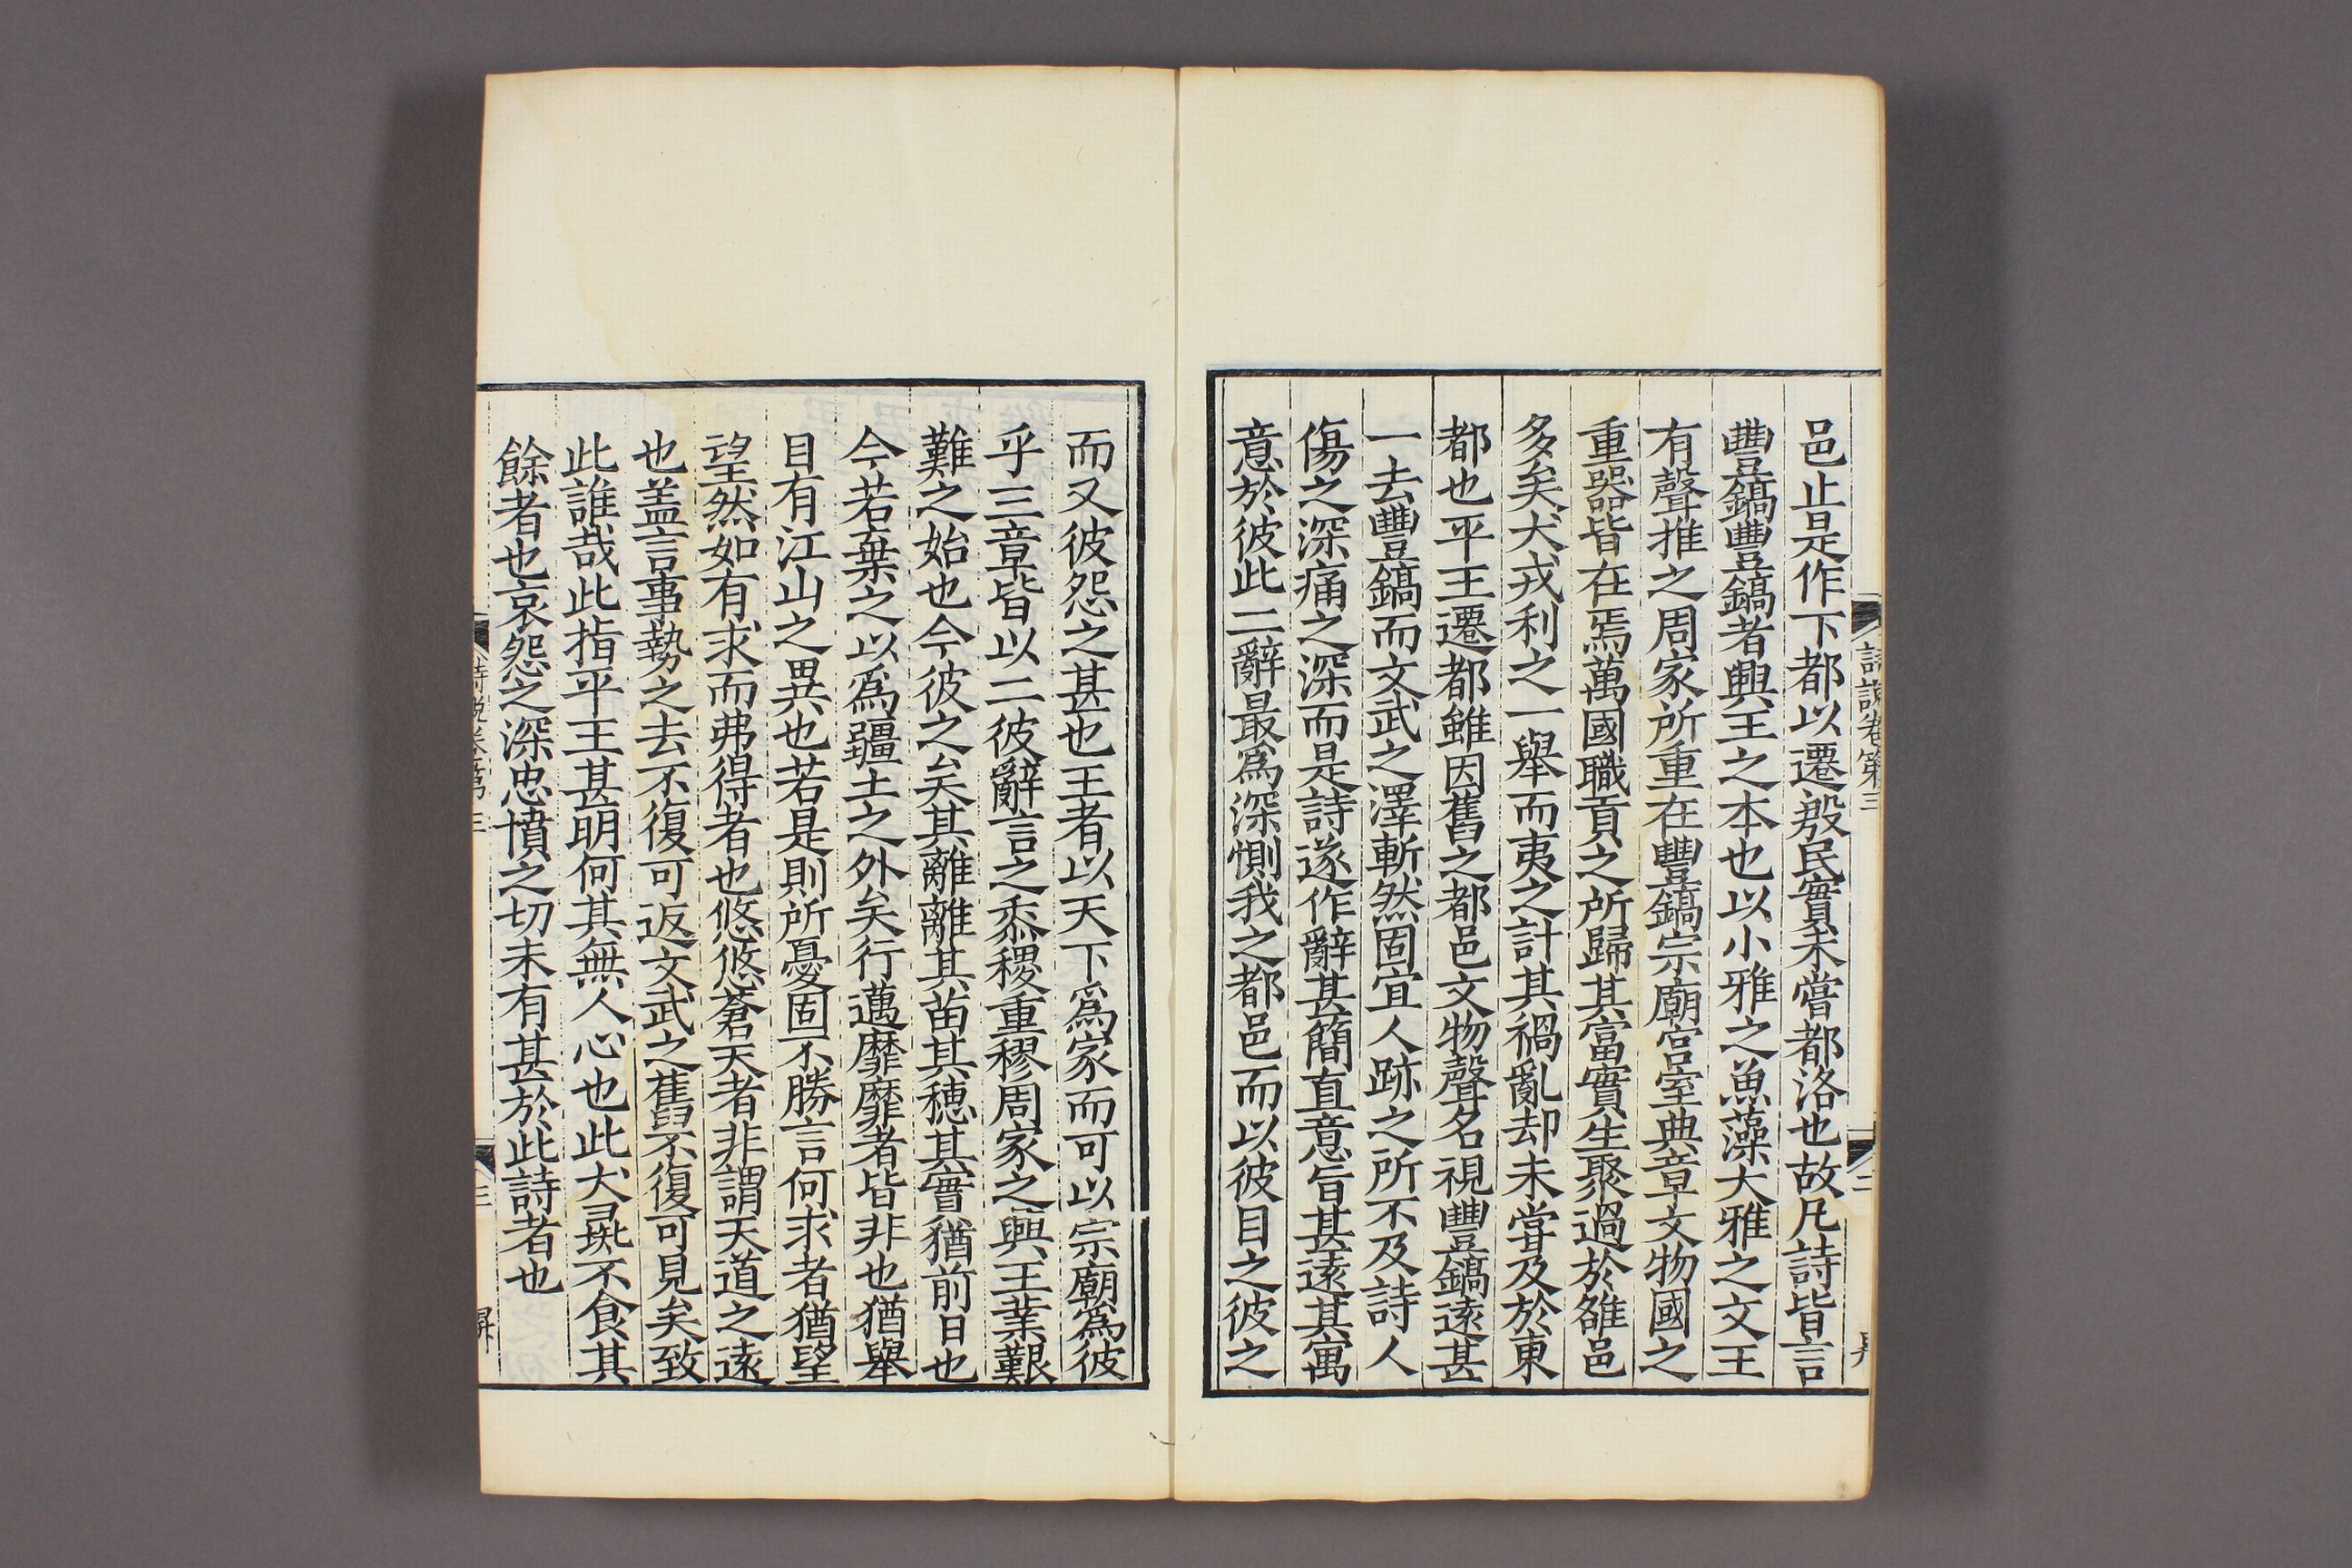 詩說卷第三
二
邑止是作下都以遷殷民實未嘗都洛也故凡詩皆言
豐鎬豐鎬者興王之本也以小雅之魚藻大雅之文王
有聲推之周家所重在豐鎬宗廟宮室典章文物國之
重器皆在焉萬國職貢之所歸其富實生聚過於雒邑
多矣犬戎利之一舉而夷之計其禍亂却未甞及於東
都也平王遷都雖因舊之都邑文物聲名視豐鎬遠甚
一去豐鎬而文武之澤斬然固宜人跡之所不及詩人
傷之深痛之深而是詩遂作辭甚簡直意旨甚遠其寓
意於彼此二辭最爲深惻我之都邑而以彼目之彼之
而又彼怨之甚也王者以天下爲家而可以宗廟爲彼
乎三章皆以二彼辭言之黍稷重穋周家之興王業艱
難之始也今彼之矣其離離其苗其穗其實猶前日也
今若棄之以爲疆土之外矣行邁靡靡者皆非也猶舉
目有江山之異也若是則所憂固不勝言何求者猶望
望然如有求而弗得者也悠悠蒼天者非謂天道之遠
也盖言事勢之去不復可返文武之舊不復可見矣致
此誰哉此指平王甚明何其無人心也此犬彘不食其
餘者也哀怨之深忠憤之切未有甚於此詩者也
詩說卷第三
三
昇